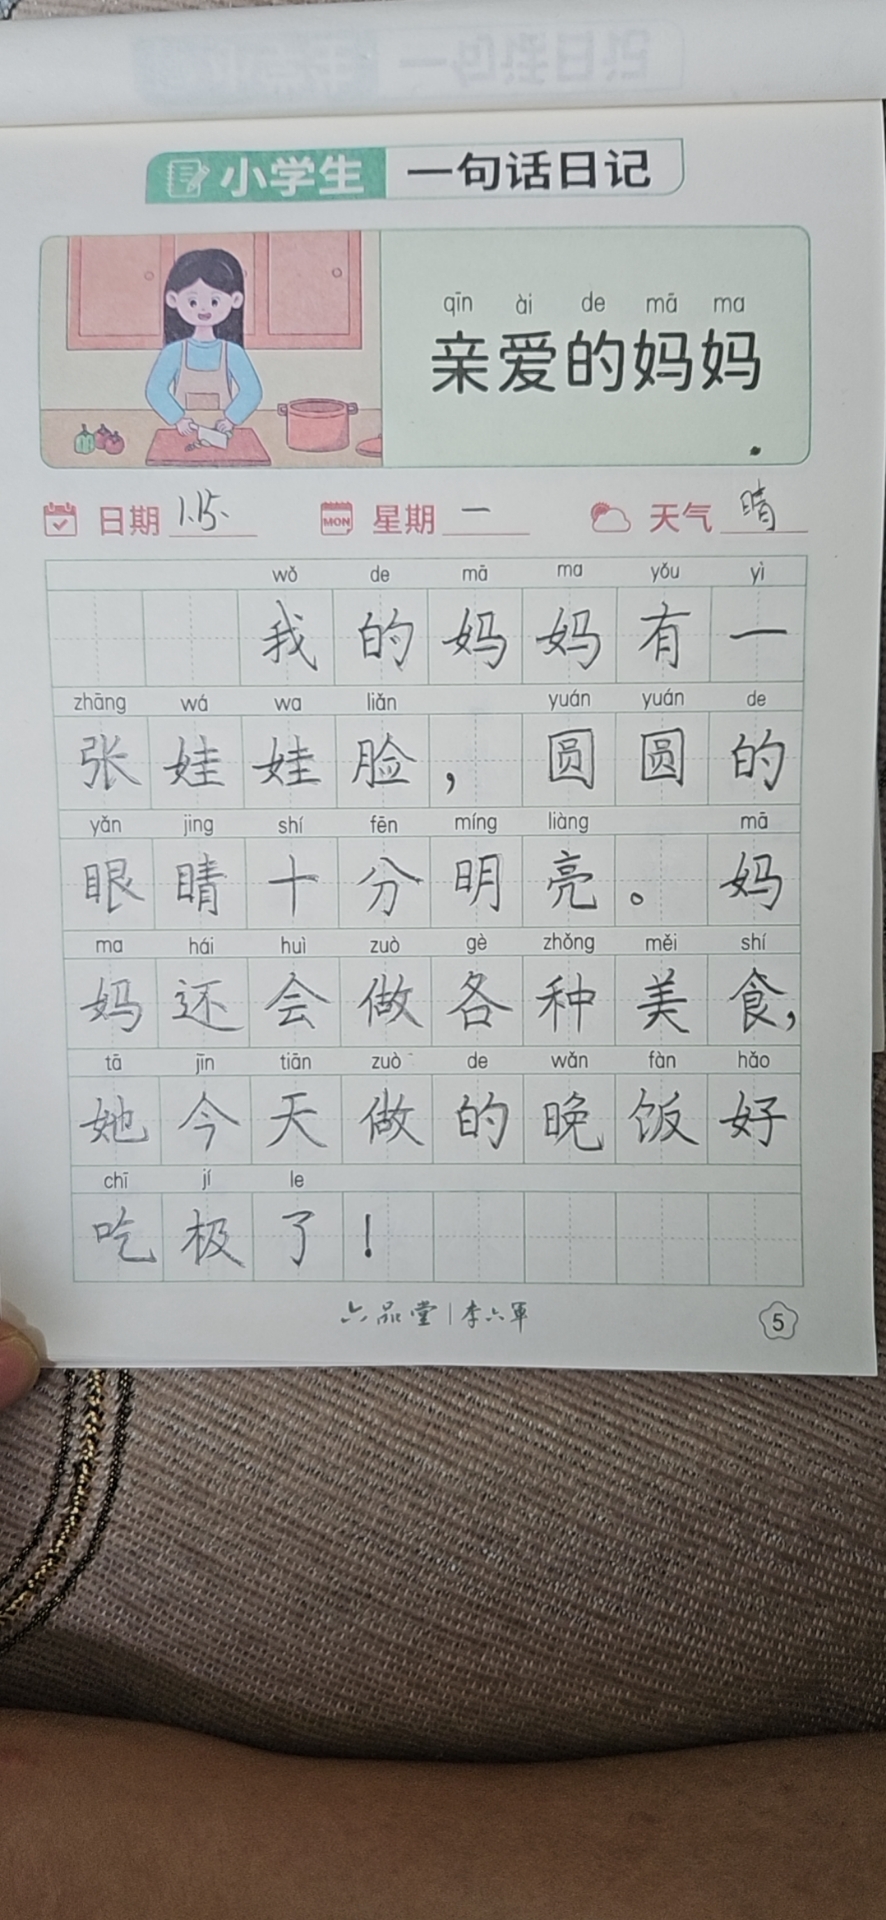 小学生 一句话日记
qīn ài de mā ma
亲爱的妈妈
日期 1.15. MON 星期 一 天气 晴
wǒ de mā ma yǒu yì
我的妈妈有一
zhāng wá wa liǎn yuán yuán de
张娃娃脸，圆圆的
yǎn jing shí fēn míng liàng mā
眼睛十分明亮。妈
ma hái huì zuò gè zhǒng měi shí
妈还会做各种美食，
tā jīn tiān zuò de wǎn fàn hǎo
她今天做的晚饭好
chī jí le
吃极了！
六品堂|李六軍
5